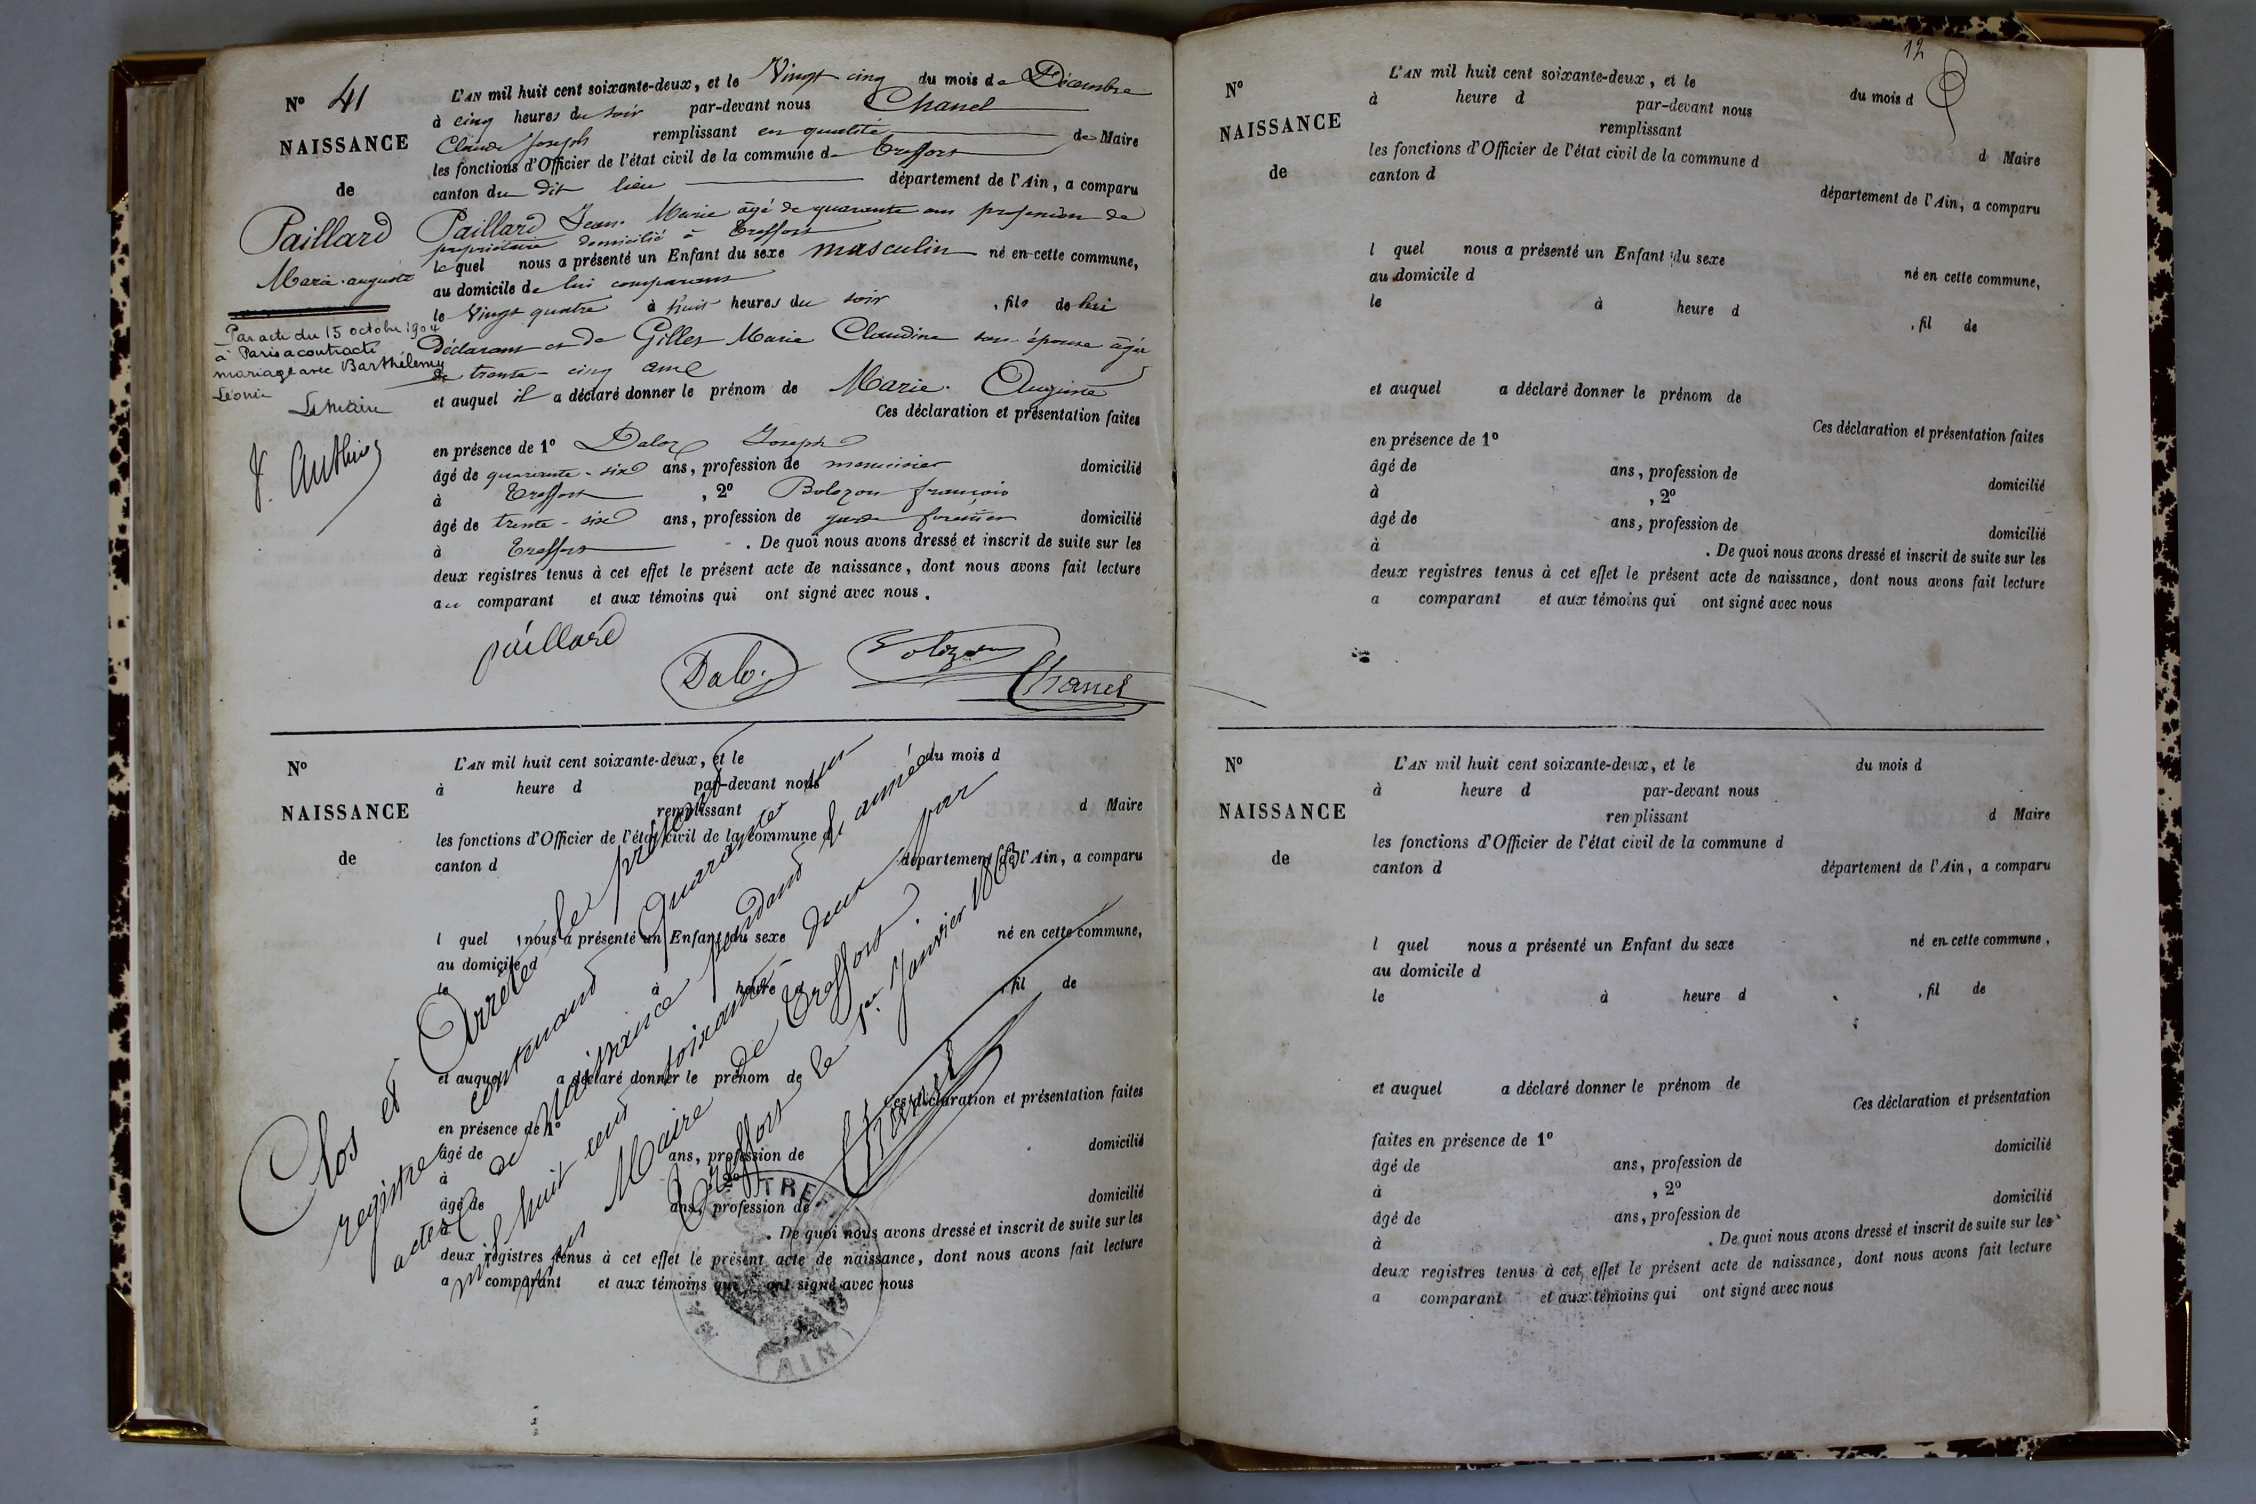 N° 41
NAISSANCE
de
Paillard
Marie-auguste
Par acte du 15 octobre 1904
à Paris a contracté
mariage avec Barthélemy
Léonie
Le Maire
L'AN mil huit cent soixante-deux, et le Vingt cinq du mois de Décembre
à cinq heures du soir par-devant nous Chanel
Claude Joseph remplissant en qualité de Maire
les fonctions d'Officier de l'état civil de la commune de Treffort
canton du dit lieu département de l'Ain, a comparu
Paillard Jean-Marie âgé de quarante ans profession de
propriétaire domicilié à Treffort
lequel nous a présenté un Enfant du sexe masculin né en cette commune,
au domicile de lui comparant
le Vingt quatre à huit heures du soir, fils de lui
Déclarant et de Gillet Marie Claudine son épouse âgée
de trente-cinq ans
et auquel il a déclaré donner le prénom de Marie-Auguste
Ces déclaration et présentation faites
en présence de 1° Daloz Joseph
âgé de quarante-six ans, profession de menuisier domicilié
à Treffort, 2° Bolozon françois
âgé de trente-six ans, profession de garde forestier domicilié
à Treffort. De quoi nous avons dressé et inscrit de suite sur les
deux registres tenus à cet effet le présent acte de naissance, dont nous avons fait lecture
au comparant et aux témoins qui ont signé avec nous.
paillard
Daloz
Bolozon
Chanel
N°
NAISSANCE
de
L'AN mil huit cent soixante-deux, et le du mois d
à heure d par-devant nous
remplissant d Maire
les fonctions d'Officier de l'état civil de la commune d
canton d département de l'Ain, a comparu
l quel nous a présenté un Enfant du sexe né en cette commune,
au domicile d
le à heure d, fil de
et auquel a déclaré donner le prénom de
Ces déclaration et présentation faites
en présence de 1°
âgé de ans, profession de domicilié
à , 2°
âgé de ans, profession de domicilié
à . De quoi nous avons dressé et inscrit de suite sur les
deux registres tenus à cet effet le présent acte de naissance, dont nous avons fait lecture
a comparant et aux témoins qui ont signé avec nous
Clos et Arrêté le présent
registre contenant Quarante un
actes de Naissance pendant l'année
mil huit cent soixante-deux par
nous Maire de Treffort.
Treffort le 1er Janvier 1863
Chanel
TREFFORT
AIN
12
N°
NAISSANCE
de
L'AN mil huit cent soixante-deux, et le du mois d
à heure d par-devant nous
remplissant d Maire
les fonctions d'Officier de l'état civil de la commune d
canton d département de l'Ain, a comparu
l quel nous a présenté un Enfant du sexe né en cette commune,
au domicile d
le à heure d, fil de
et auquel a déclaré donner le prénom de
Ces déclaration et présentation faites
en présence de 1°
âgé de ans, profession de domicilié
à , 2°
âgé de ans, profession de domicilié
à . De quoi nous avons dressé et inscrit de suite sur les
deux registres tenus à cet effet le présent acte de naissance, dont nous avons fait lecture
a comparant et aux témoins qui ont signé avec nous
N°
NAISSANCE
de
L'AN mil huit cent soixante-deux, et le du mois d
à heure d par-devant nous
remplissant d Maire
les fonctions d'Officier de l'état civil de la commune d
canton d département de l'Ain, a comparu
l quel nous a présenté un Enfant du sexe né en cette commune,
au domicile d
le à heure d, fil de
et auquel a déclaré donner le prénom de
Ces déclaration et présentation
faites en présence de 1° domicilié
âgé de ans, profession de
à , 2° domicilié
âgé de ans, profession de
à . De quoi nous avons dressé et inscrit de suite sur les
deux registres tenus à cet effet le présent acte de naissance, dont nous avons fait lecture
a comparant et aux témoins qui ont signé avec nous